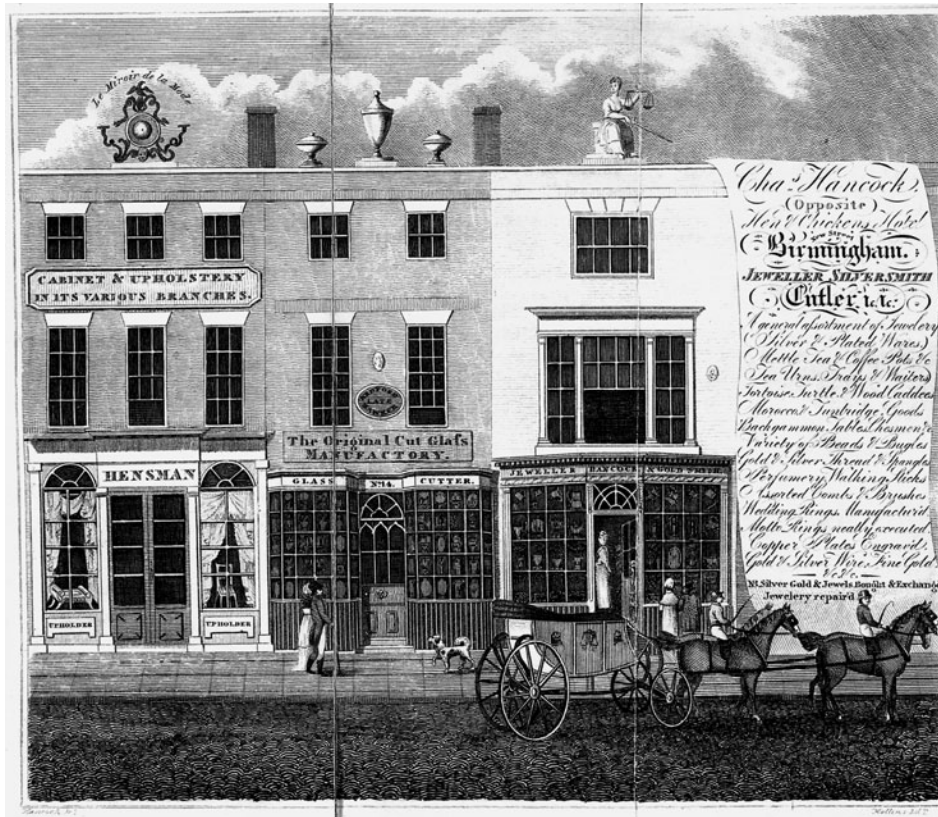 Le Miroir de la Mode
CABINET & UPHOLSTERY
IN ITS VARIOUS BRANCHES.
HENSMAN
UPHOLDER
UPHOLDER
The Original Cut Glaſs
MANUFACTORY.
GLASS Nº14. CUTTER.
JEWELLER HANCOCK & GOLD
Chaˢ Hancock,
(Opposite)
Hen & Chickens Hotel
New Street
Birmingham.
JEWELLER SILVERSMITH
Cutler, &c &c
A general aſsortment of Jewelery
(Silver & Plated Wares,)
Mettle Tea & Coffee Pots &c
Tea Urns, Trays & Waiters
Tortoise Turtle & Wood Caddees
Morocco & Tunbridge Goods
Backgammon Tables Chesmen &c
Variety of Beads & Bugles
Gold & Silver Thread & Spangles
Perfumery, Walking Sticks
Aſsorted Combs & Brushes
Wedding Rings Manufactur'd
Motto Rings neatly executed
Copper Plates Engrav'd
Gold & Silver Wire, Fine Gold
&c &c
NB. Silver Gold & Jewels Bought & Exchang
Jewelery repair'd